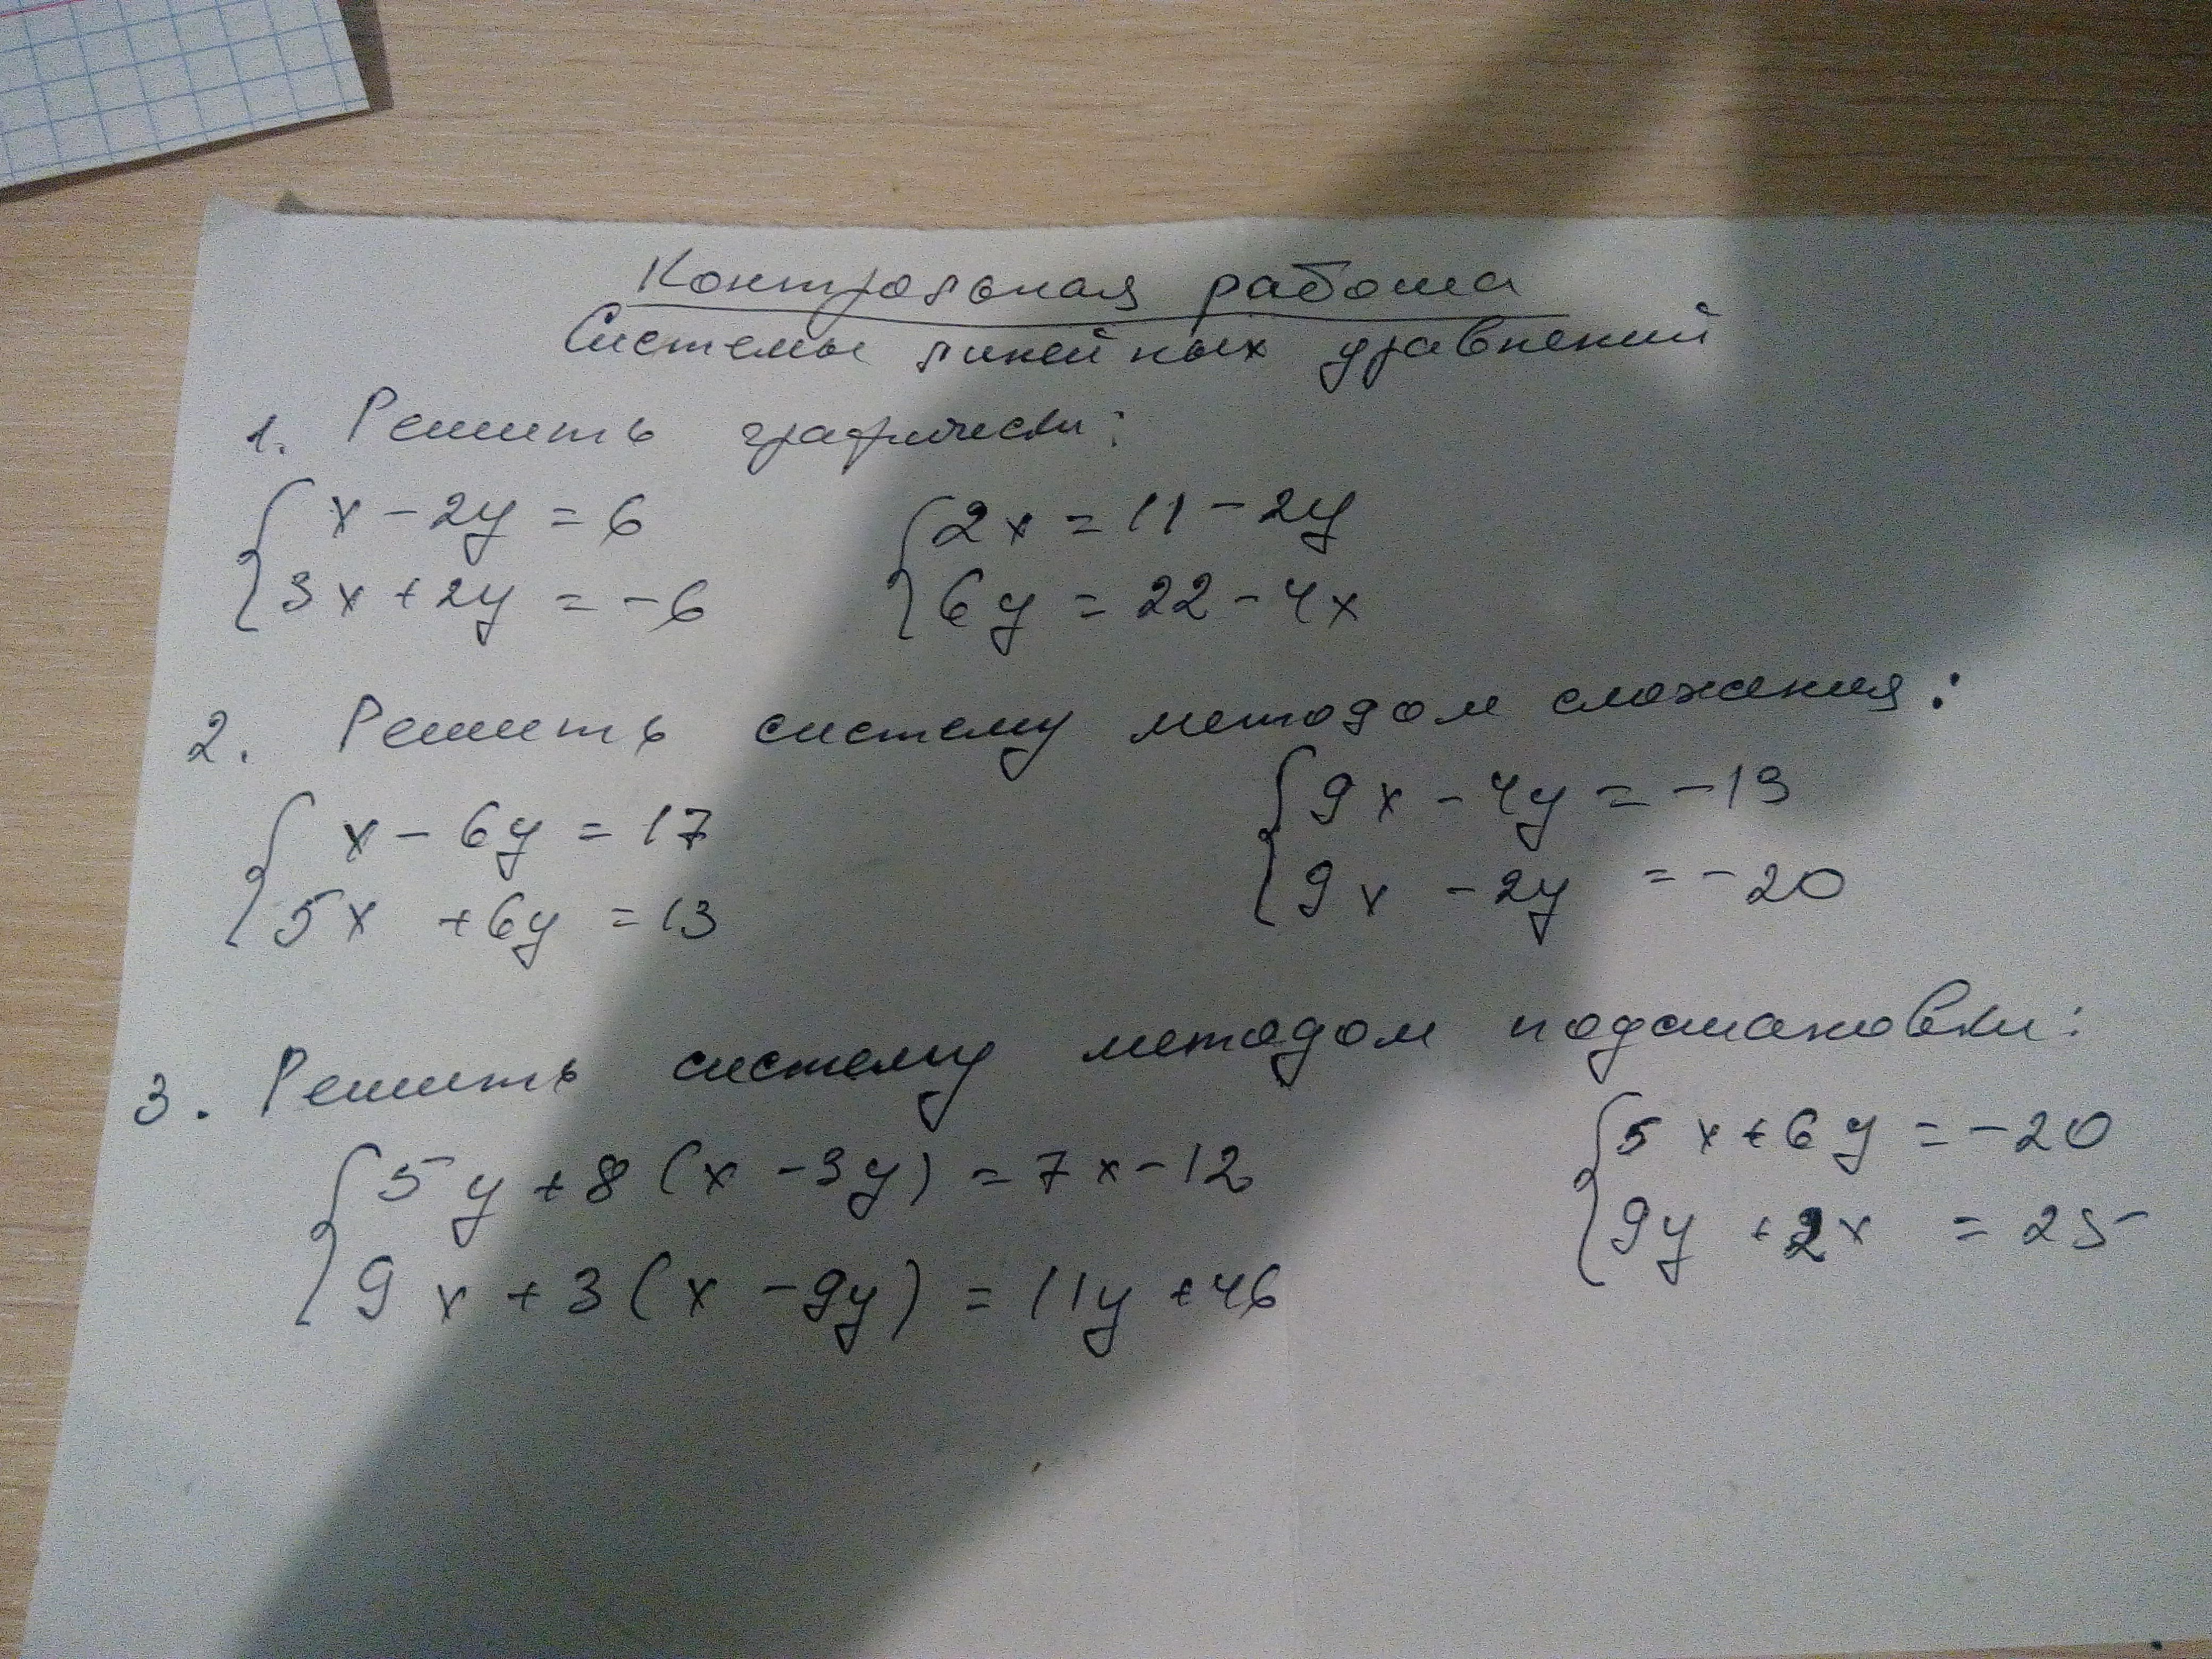 Контрольная работа
Системы линейных уравнений
1. Решить графически:
x - 2y = 6
3x + 2y = -6
2x = 11 - 2y
6y = 22 - 4x
2. Решить систему методом сложения:
x - 6y = 17
5x + 6y = 13
9x - 4y = -13
9x - 2y = -20
3. Решить систему методом подстановки:
5y + 8(x - 3y) = 7x - 12
9x + 3(x - 9y) = 11y + 46
5x + 6y = -20
9y + 2x = 25